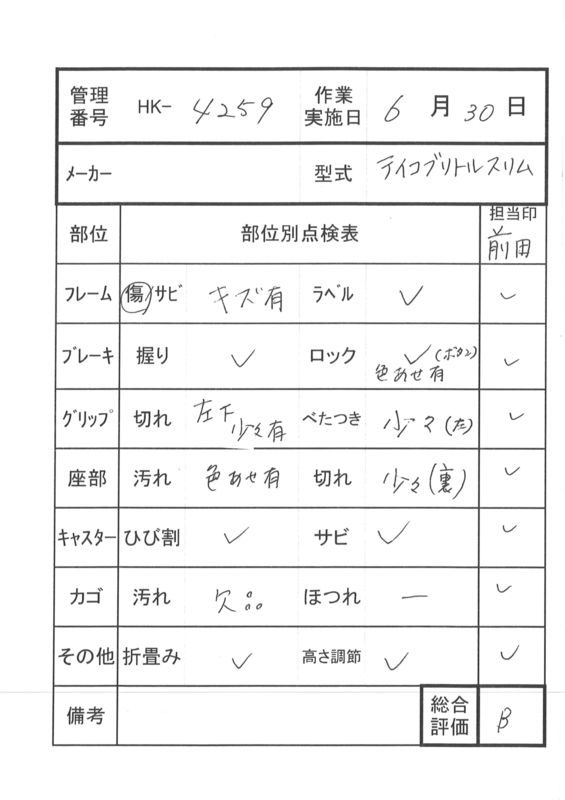 管理番号 HK- 4259 作業実施日 6 月 30 日
メーカー 型式 テイコブリトルスリム
部位 部位別点検表 担当印 前田
フレーム 傷 サビ キズ有 ラベル ✓ ✓
ブレーキ 握り ✓ ロック ✓(ボタン) 色あせ有 ✓
グリップ 切れ 左下少々有 べたつき 少々(左) ✓
座部 汚れ 色あせ有 切れ 少々(裏) ✓
キャスター ひび割 ✓ サビ ✓ ✓
カゴ 汚れ 欠品 ほつれ ー ✓
その他 折畳み ✓ 高さ調節 ✓ ✓
備考 総合評価 B